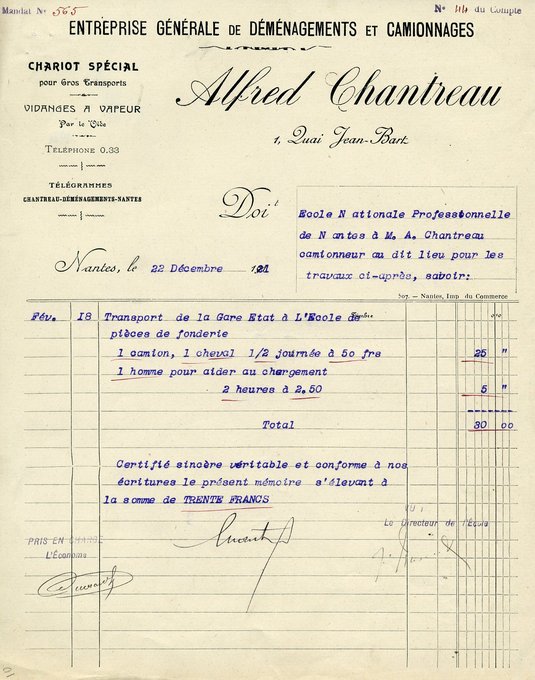 Mandat N° 565
N° 44 du Compte
ENTREPRISE GÉNÉRALE DE DÉMÉNAGEMENTS ET CAMIONNAGES
CHARIOT SPÉCIAL
pour Gros Transports
VIDANGES A VAPEUR
Par le Vide
TÉLÉPHONE 0.33
TÉLÉGRAMMES
CHANTREAU-DÉMÉNAGEMENTS-NANTES
Alfred Chantreau
1, Quai Jean-Bart
Doit
Ecole Nationale Professionnelle
de Nantes à M. A. Chantreau
camionneur au dit lieu pour les
travaux ci-après, savoir:
Nantes, le 22 Décembre 1921
507. — Nantes, Imp. du Commerce
Fév. 18 Transport de la Gare Etat à L'Ecole de
pièces de fonderie
1 camion, 1 cheval 1/2 journée à 50 frs 25 "
1 homme pour aider au chergement
2 heures à 2.50 5 "
Total 30 00
Certifié sincère véritable et conforme à nos
écritures le présent mémoire s'élevant à
la somme de TRENTE FRANCS
VU:
Le Directeur de l'École
PRIS EN CHARGE
L'Économe